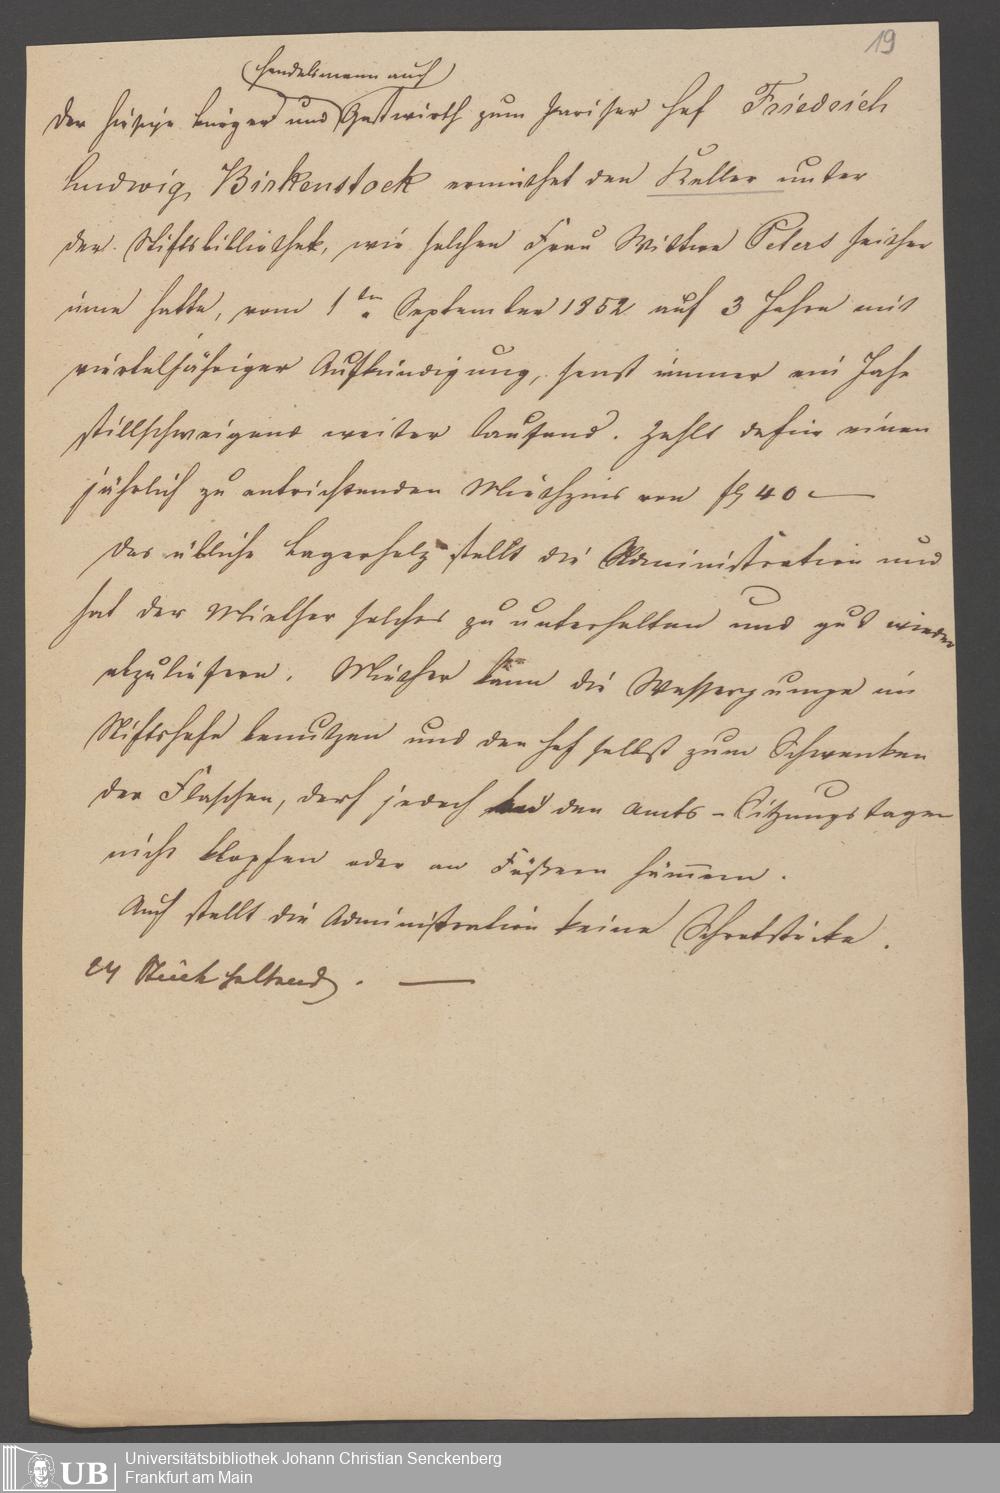 19
Handelsmann auch
Der hiesige Bürger und Gastwirth zum Pariser Hof Friedrich
Ludwig Birkenstock ermiethet den Keller unter
der Stiftsbibliothek, wie solchen Frau Wittwe Peters seither
inne hatte, vom 1ten September 1852 auf 3 Jahre mit
vierteljähriger Aufkündigung, sonst immer ein Jahr
stillschweigend weiter laufend. Zahlt dafür einen
jährlich zu entrichtenden Miethzins von fl 40 —
Das übliche Lagerholz stellt die Administration und
hat der Miether solches zu unterhalten und gut wieder
abzuliefern. Miether kann die Wasserpumpe im
Stiftshofe benutzen und den Hof selbst zum Schwenken
der Flaschen, darf jedoch den Amts-Sitzungstagen
nicht klopfen oder an Fässern hämmern.
Auch stellt die Administration keine
Stück haltend. —
Universitätsbibliothek Johann Christian Senckenberg
UB Frankfurt am Main